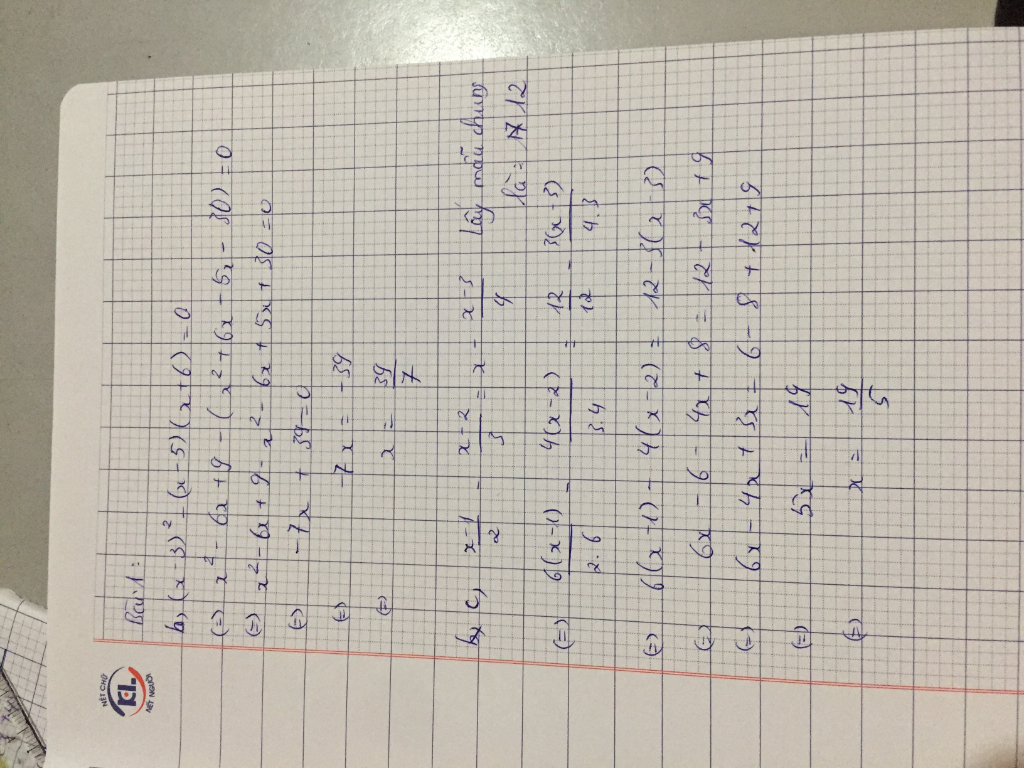 NÉT CHỮ
NẾT NGƯỜI
Bài 1:
b, (x-3)² - (x-5)(x+6) = 0
(=) x² - 6x + 9 - (x² + 6x - 5x - 30) = 0
(=) x² - 6x + 9 - x² - 6x + 5x + 30 = 0
(=) -7x + 39 = 0
(=) -7x = -39
(=) x = 39/7
c, (x-1)/2 - (x-2)/3 = x - (x-3)/4 lấy mẫu chung
là = 12
(=) 6(x-1)/2.6 - 4(x-2)/3.4 = 12/12 - 3(x-3)/4.3
(=) 6(x-1) - 4(x-2) = 12 - 3(x-3)
(=) 6x - 6 - 4x + 8 = 12 - 3x + 9
(=) 6x - 4x + 3x = 6 - 8 + 12 + 9
(=) 5x = 19
(=) x = 19/5